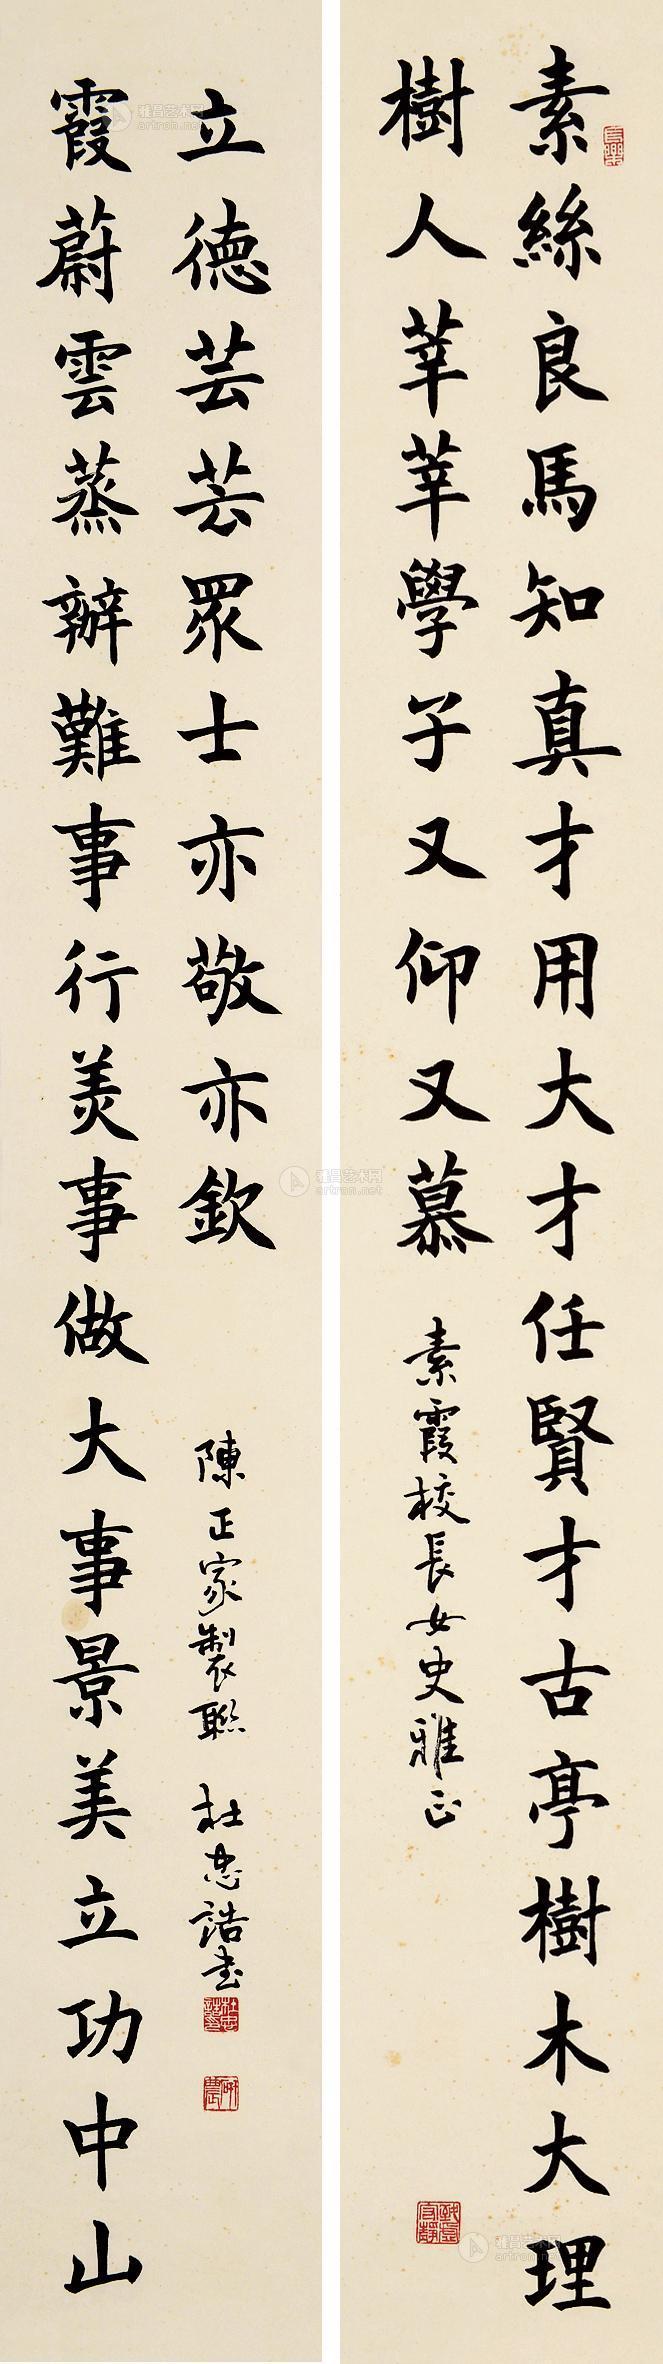 素絲良馬知真才用大才任賢才古亭樹木大理
樹人莘莘學子又仰又慕
素霞校長女史雅正
霞蔚雲蒸辦難事行美事做大事景美立功中山
立德芸芸眾士亦敬亦欽
陳正家製聯 杜忠誥書
雅昌艺术网
artron.net